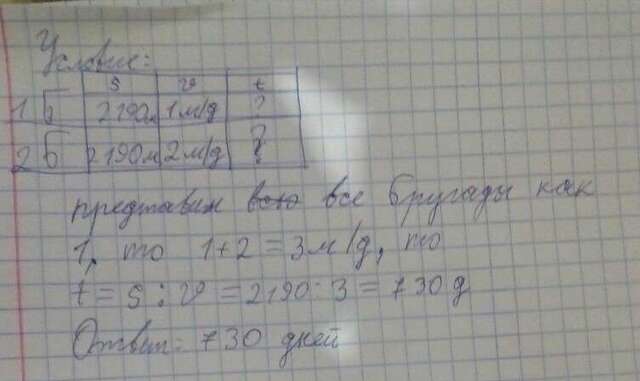 Условие:
s v t
1 б 2190м 1м/д ?
2 б 2190м 2м/д ?
представим всю все бругады как
1, то 1+2=3м/д, то
t=s:v=2190:3=730д
Ответ: 730 дней